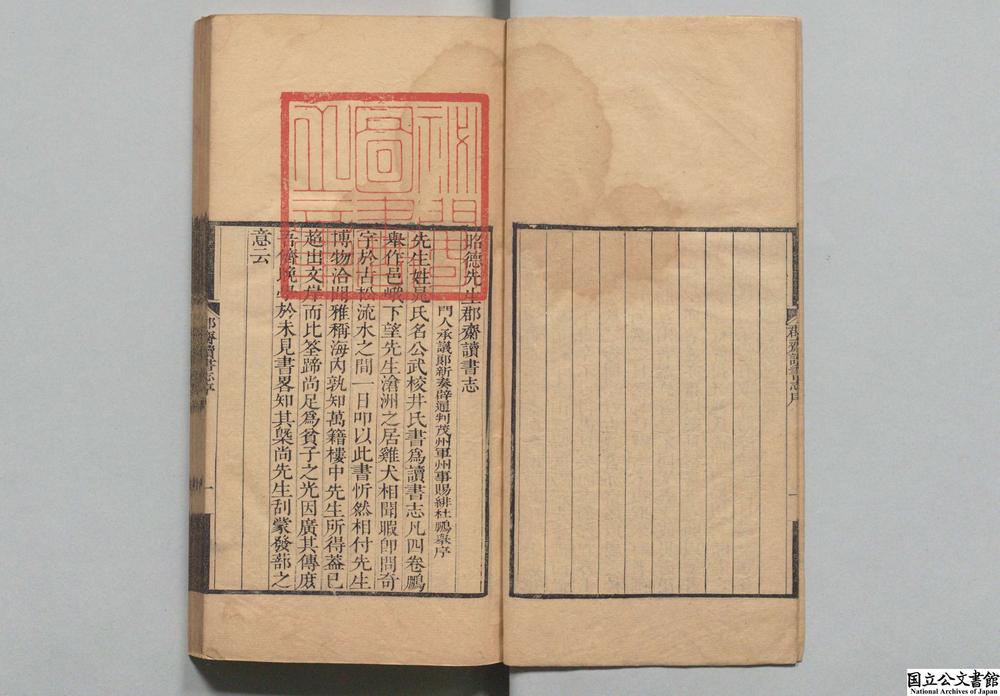 昭德先生郡齋讀書志
門人承議郎新奏辟通判茂州軍州事賜緋杜鵬舉序
先生姓晁氏名公武校井氏書爲讀書志凡四卷鵬
舉作邑峨下望先生滄洲之居雞犬相聞暇卽問奇
字於古松流水之間一日叩以此書忻然相付先生
博物洽聞雅稱海內孰知萬籍樓中先生所得葢已
超出文字而比筌蹄尚足爲貧子之光因廣其傳庶
吾儕晚學於未見書畧知其槩尚先生刮蒙發蔀之
意云
郡齋讀書志序
一
郡齋讀書志序
一
国立公文書館
National Archives of Japan